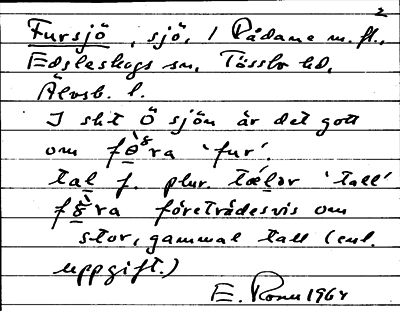 2
Fursjö, sjö, / Rådane m. fl.,
Edsleskogs sn, Tössbo hd,
Älvsb. l.
I slt Ö sjön är det gott
om føra 'fur'.
tal f. plur. tælər 'tall'
föra företrädesvis om
stor, gammal tall (enl.
uppgift.)
E. 1964